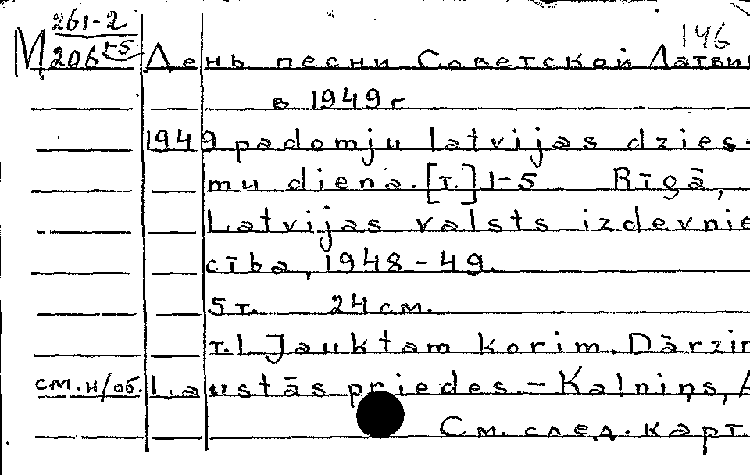 261-2
146
М 206 55 День песни Советской Латвии
в 1949 г
1949 padomju latvijas dzies-
mu diena. [т.] 1-5 Rīgā,
Latvijas valsts izdevnie
cība, 1948-49.
5 т. 24 см.
т.1 Jauktam korim. Dārzin
см. н/об. Laustās priedes. - Kalniņs, A
См. след. карт.